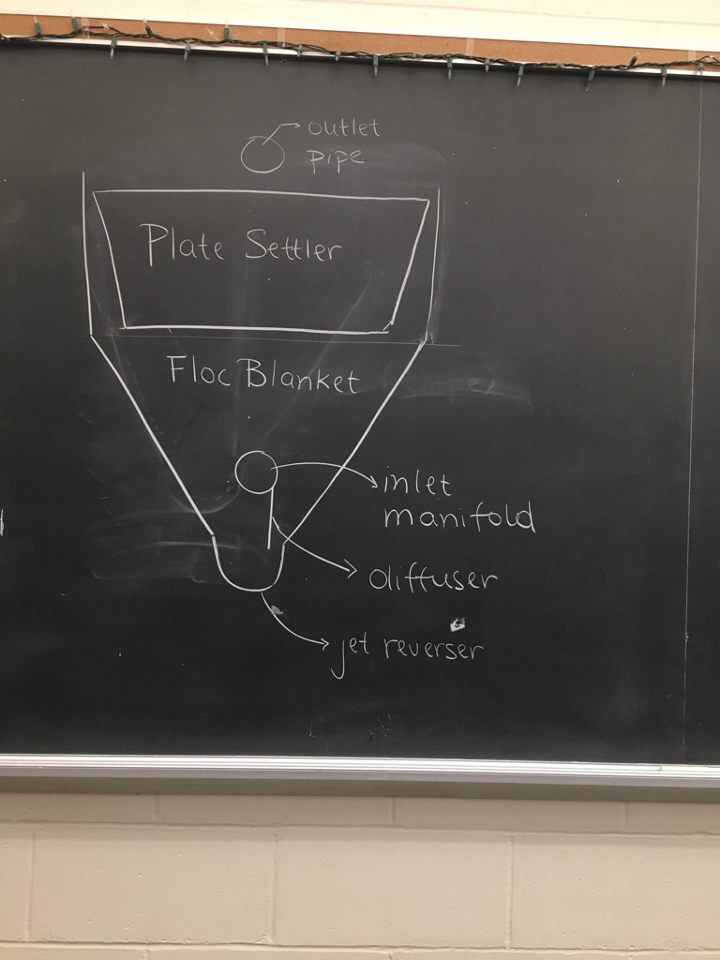 outlet
pipe
Plate Settler
Floc Blanket
inlet
manifold
diffuser
jet reverser